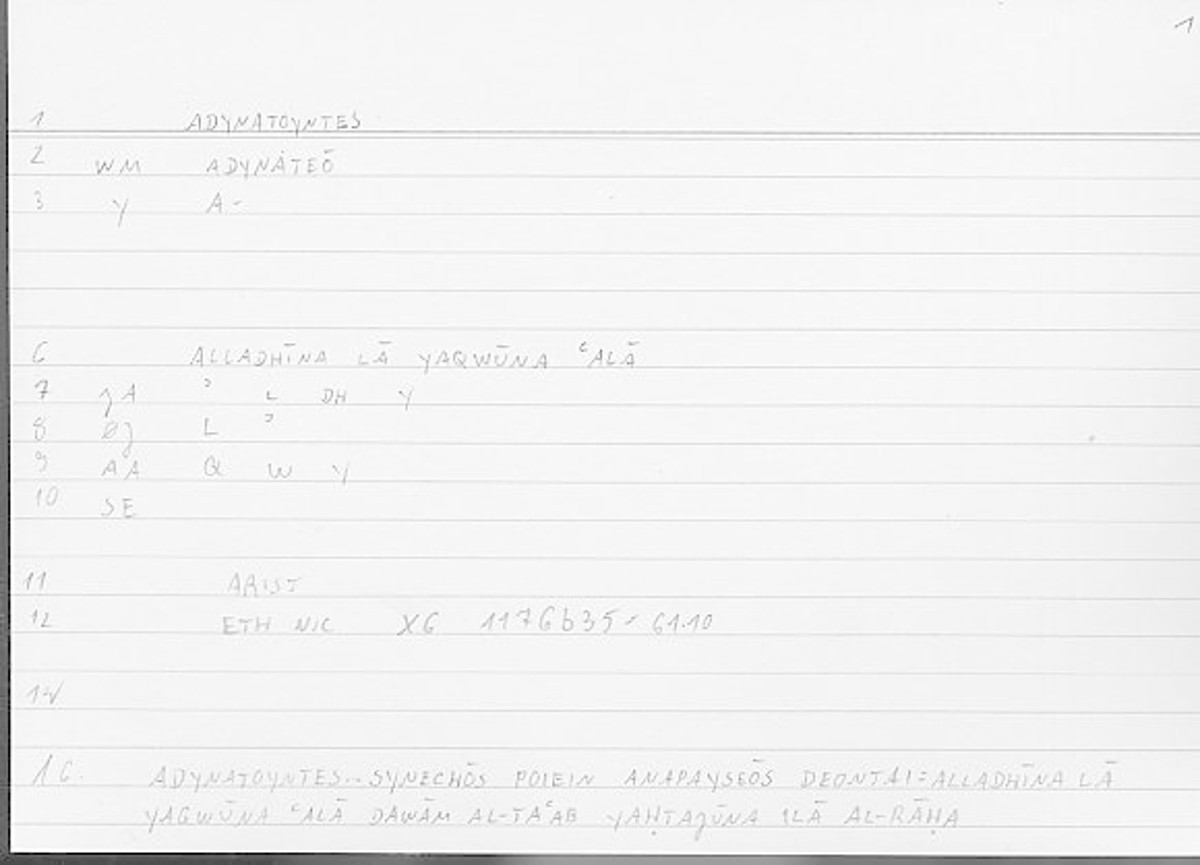 1
1 ADYNATOYNTES
2 WM ADYNATEŌ
3 Y A-
6 ALLADHĪNA LĀ YAQWŪNA ʿALĀ
7 jA ʾ L DH Y
8 Øj L ʾ
9 AA Q W Y
10 SE
11 ARIST
12 ETH NIC X6 1176b35- 61.10
14
16. ADYNATOYNTES.. SYNECHŌS POIEIN ANAPAYSEŌS DEONTAI=ALLADHĪNA LĀ
YAGWŪNA ʿALĀ DAWĀM AL-TAʿAB YAḤTAJŪNA ILĀ AL-RĀḤA